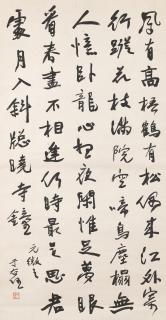 鳳有高梧鶴有松偶來江外寄
行蹤花枝滿院空啼鳥塵榻無
人憶卧龍心想夜閑惟足夢眼
看春盡不相逢何時最是思君
處月入斜窗曉寺鐘
元微之